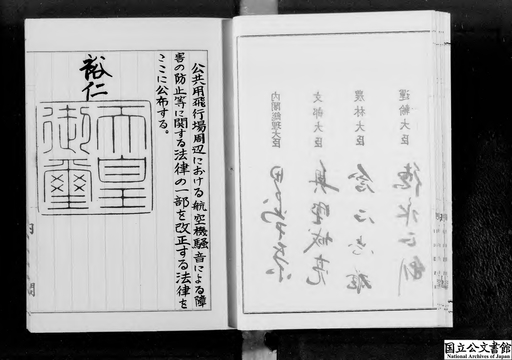 運輸大臣
農林大臣
文部大臣
内閣総理大臣
公共用飛行場周辺における航空機騒音による障
害の防止等に関する法律の一部を改正する法律を
ここに公布する。
裕仁
天皇
御璽
国立公文書館
National Archives of Japan